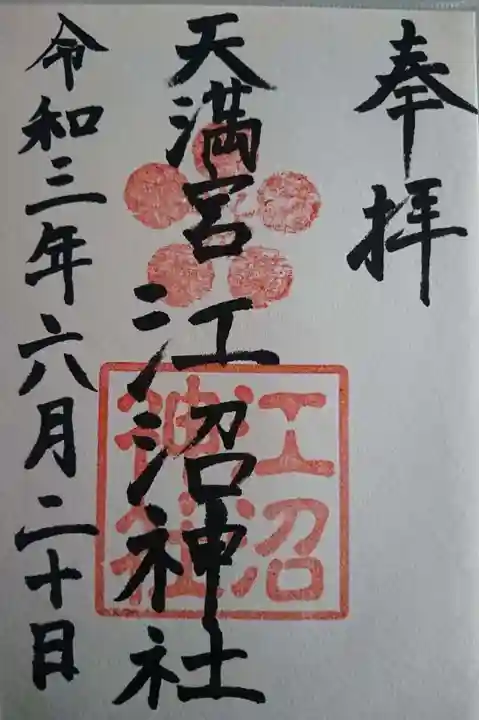 奉拝
天満宮 江沼神社
江沼
神社
令和三年六月二十日